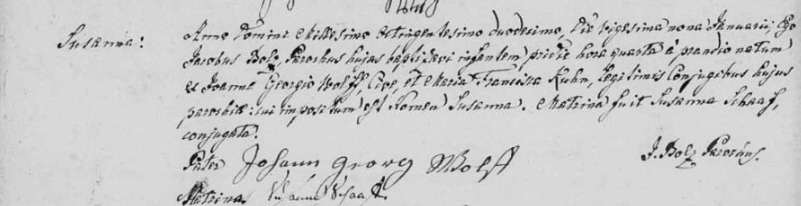 Susanna: Anno Domini Millesimo octingentesimo duodecimo, die vigesima nona Januarii, Ego
Jacobus Bolz, Parochus hujus baptizavi infantem pridie hora quarta a prandio natum
ex Joanne Georgio Wolff, Cive, et Maria Francisca Kuhn, legitimis Conjugibus hujus
parochiæ: cui impositum est nomen Susanna. Matrina fuit Susanna Schaaf,
conjugata.
Pater Johann georg Wolff J. Bolz Parochus.
Matrina Susanna Schaaff.